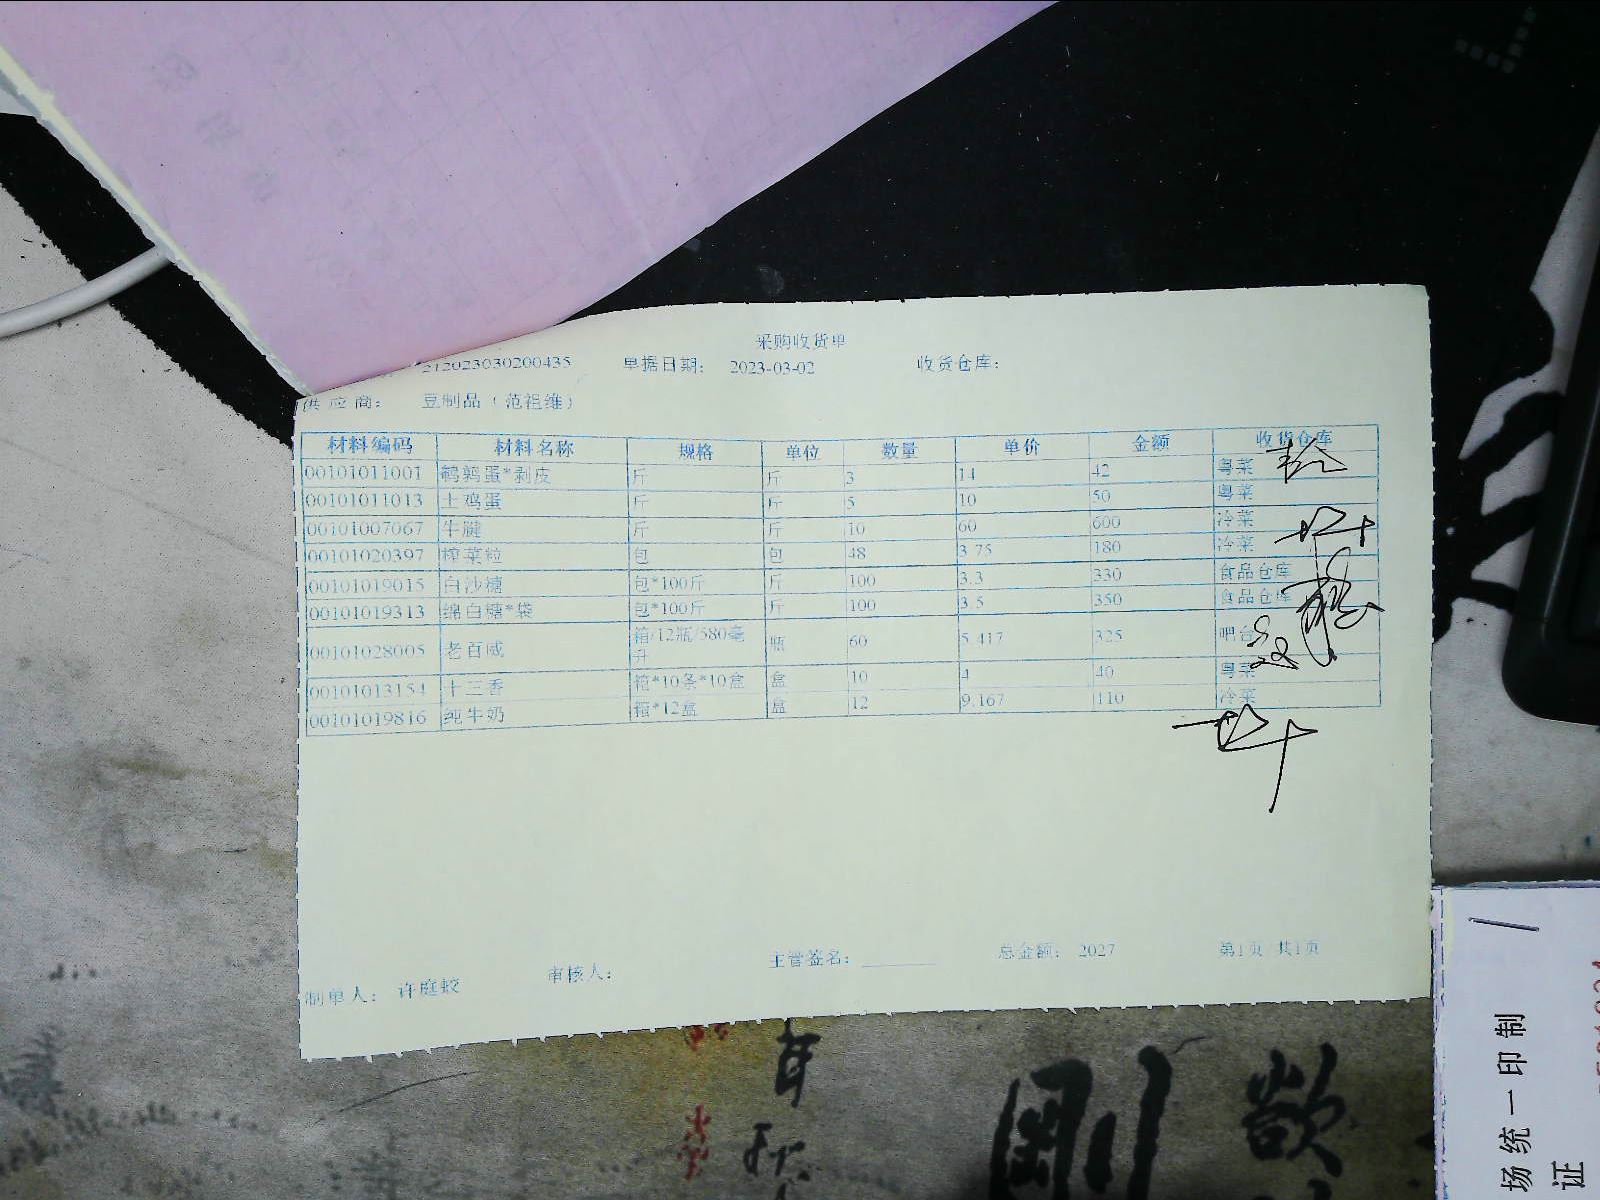 采购收货单
212023030200435 单据日期： 2023-03-02 收货仓库：
供 应 商： 豆制品（范祖维）
材料编码 材料名称 规格 单位 数量 单价 金额 收货仓库
00101011001 鹌鹑蛋*剥皮 斤 斤 3 14 42 粤菜
00101011013 土鸡蛋 斤 斤 5 10 50 粤菜
00101007067 牛腱 斤 斤 10 60 600 冷菜
00101020397 榨菜粒 包 包 48 3.75 180 冷菜
00101019015 白沙糖 包*100斤 斤 100 3.3 330 食品仓库
00101019313 绵白糖*袋 包*100斤 斤 100 3.5 350 食品仓库
00101028005 老百威 箱/12瓶/580毫升 瓶 60 5.417 325 吧台
00101013154 十三香 箱*10条*10盒 盒 10 4 40 粤菜
00101019816 纯牛奶 箱*12盒 盒 12 9.167 110 冷菜
制单人： 许庭蛟 审核人： 主管签名： 总金额： 2027 第1页/共1页
场统一印制
证
剛
欲